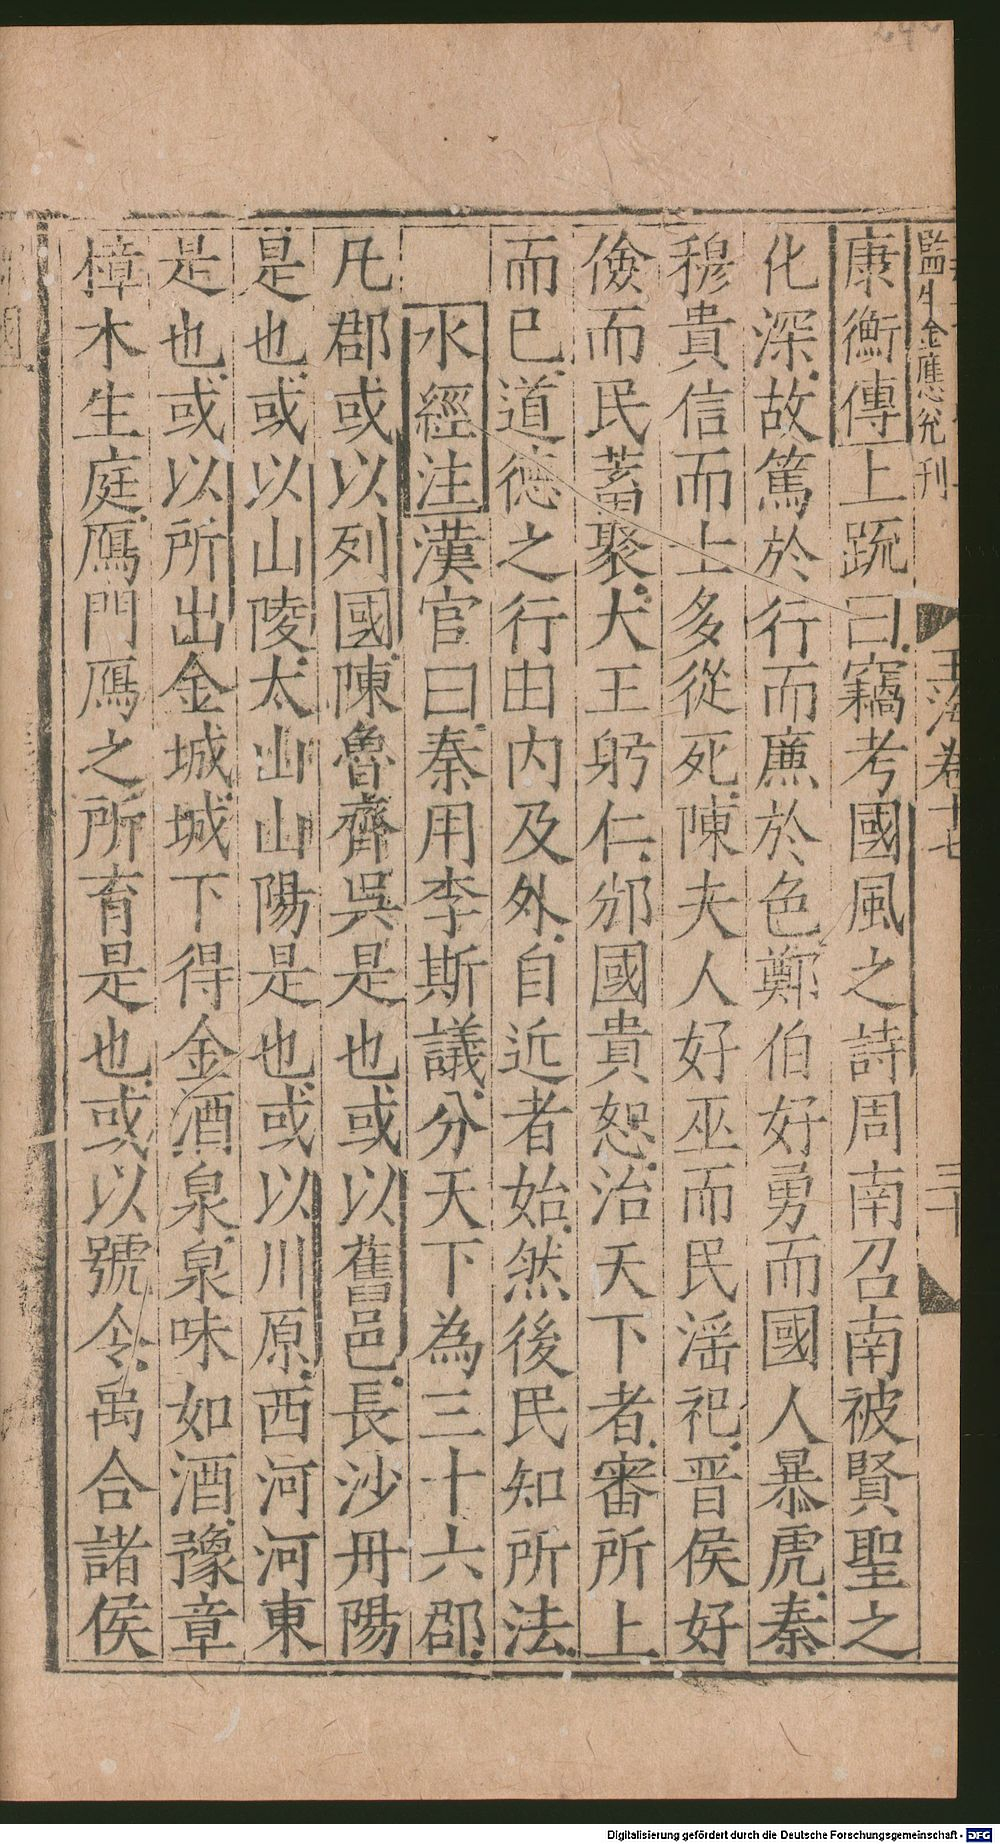 監生金應兊刊
玉海卷十七
三十
康衡傳上疏曰竊考國風之詩周南召南被賢聖之
化深故篤於行而廉於色鄭伯好勇而國人暴虎秦
穆貴信而士多從死陳夫人好巫而民滛祀晋侯好
儉而民蓄聚大王躬仁邠國貴恕治天下者審所上
而已道德之行由内及外自近者始然後民知所法
水經注漢官曰秦用李斯議分天下為三十六郡
凡郡或以列國陳魯齊吳是也或以舊邑長沙丹陽
是也或以山陵太山山陽是也或以川原西河河東
是也或以所出金城城下得金酒泉泉味如酒豫章
樟木生庭鴈門鴈之所育是也或以號令禹合諸侯
Digitalisierung gefördert durch die Deutsche Forschungsgemeinschaft - DFG